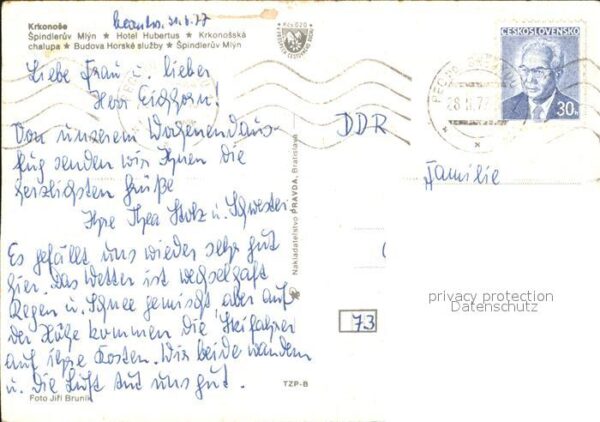 Krkonoše
Špindlerův Mlýn ★ Hotel Hubertus ★ Krkonošská
chalupa ★ Budova Horské služby ★ Špindlerův Mlýn
Kčs 0,20
ČESKOSLOVENSKO
30h
28.
77
Liebe Frau u. lieber
Herr Eichhorn!
Von unserem Wochenendaus-
flug senden wir Ihnen die
herzlichsten Grüße
Ihre Thea Stolz u. Schwester
Es gefällt uns wieder sehr gut
hier. Das Wetter ist wechselhaft
Regen u. Schnee gemischt aber auf
der Höhe kommen die Skifahrer
auf ihre Kosten. Wir beide wandern
u. die Luft tut uns gut.
Foto Jiří Bruník
TZP-B
Nakladatelství PRAVDA, Bratislava
DDR
Familie
privacy protection
Datenschutz
73